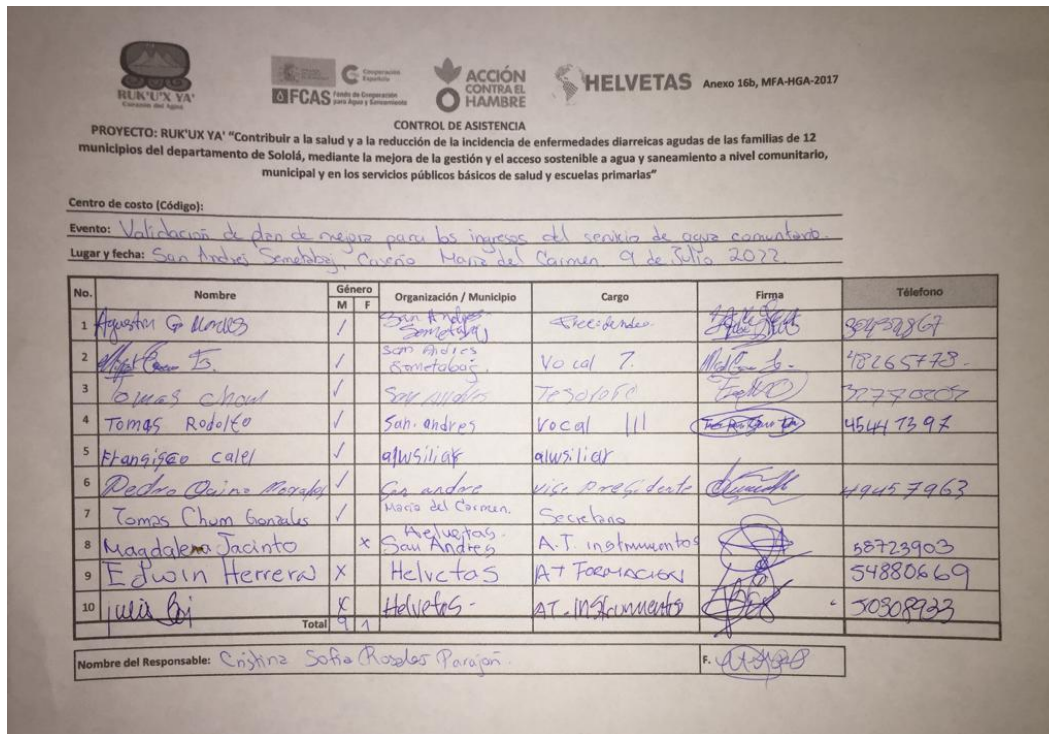 RUK'U'X YA'
Corazón del Agua
Cooperación Española
FCAS Fondo de Cooperación para Agua y Saneamiento
ACCIÓN CONTRA EL HAMBRE
HELVETAS Anexo 16b, MFA-HGA-2017
CONTROL DE ASISTENCIA
PROYECTO: RUK'UX YA' “Contribuir a la salud y a la reducción de la incidencia de enfermedades diarreicas agudas de las familias de 12
municipios del departamento de Sololá, mediante la mejora de la gestión y el acceso sostenible a agua y saneamiento a nivel comunitario,
municipal y en los servicios públicos básicos de salud y escuelas primarias”
Centro de costo (Código):
Evento: Validación de plan de mejora para los ingresos del servicio de agua comunitario.
Lugar y fecha: San Andrés Semetabaj, Caserío María del Carmen 9 de Julio 2022
No. Nombre Género M F Organización / Municipio Cargo Firma Télefono
1 Agustin / San Andres Semetabaj
2 / San Andres Sometabaj. Vocal 48265778
3 Tomas / San Andres Tesorero
4 Tomas Rodolfo / San. andres Vocal III 45441397
5 Frangisco calel / alwsiliar alwsiliar
6 Pedro Quino Morales / San andre vice Presidente 49457963
7 Tomas Chum Gonzales / Maria del Carmen. Secretario
8 Magdalena Jacinto x Helvetas. San Andres A.T. instrumentos 58723903
9 Edwin Herrera X Helvetas AT FORMACION 54880669
10 X Helvetas - AT. Instrumentos 50308933
Total 9 1
Nombre del Responsable: Cristina Sofia Rosales F.